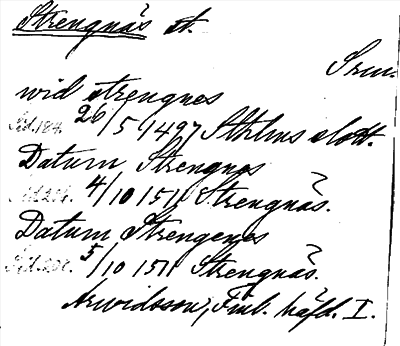 Strengnäs st.
Srm.
wid strengnes
Sid. 184. 26/5 1497 Sthlms slott.
Datum Strengnes
4/10 1511 Strengnäs?.
Datum Strengenes
5/10 1511 Strengnäs?.
Arwidsson, Finl. häfd. I.